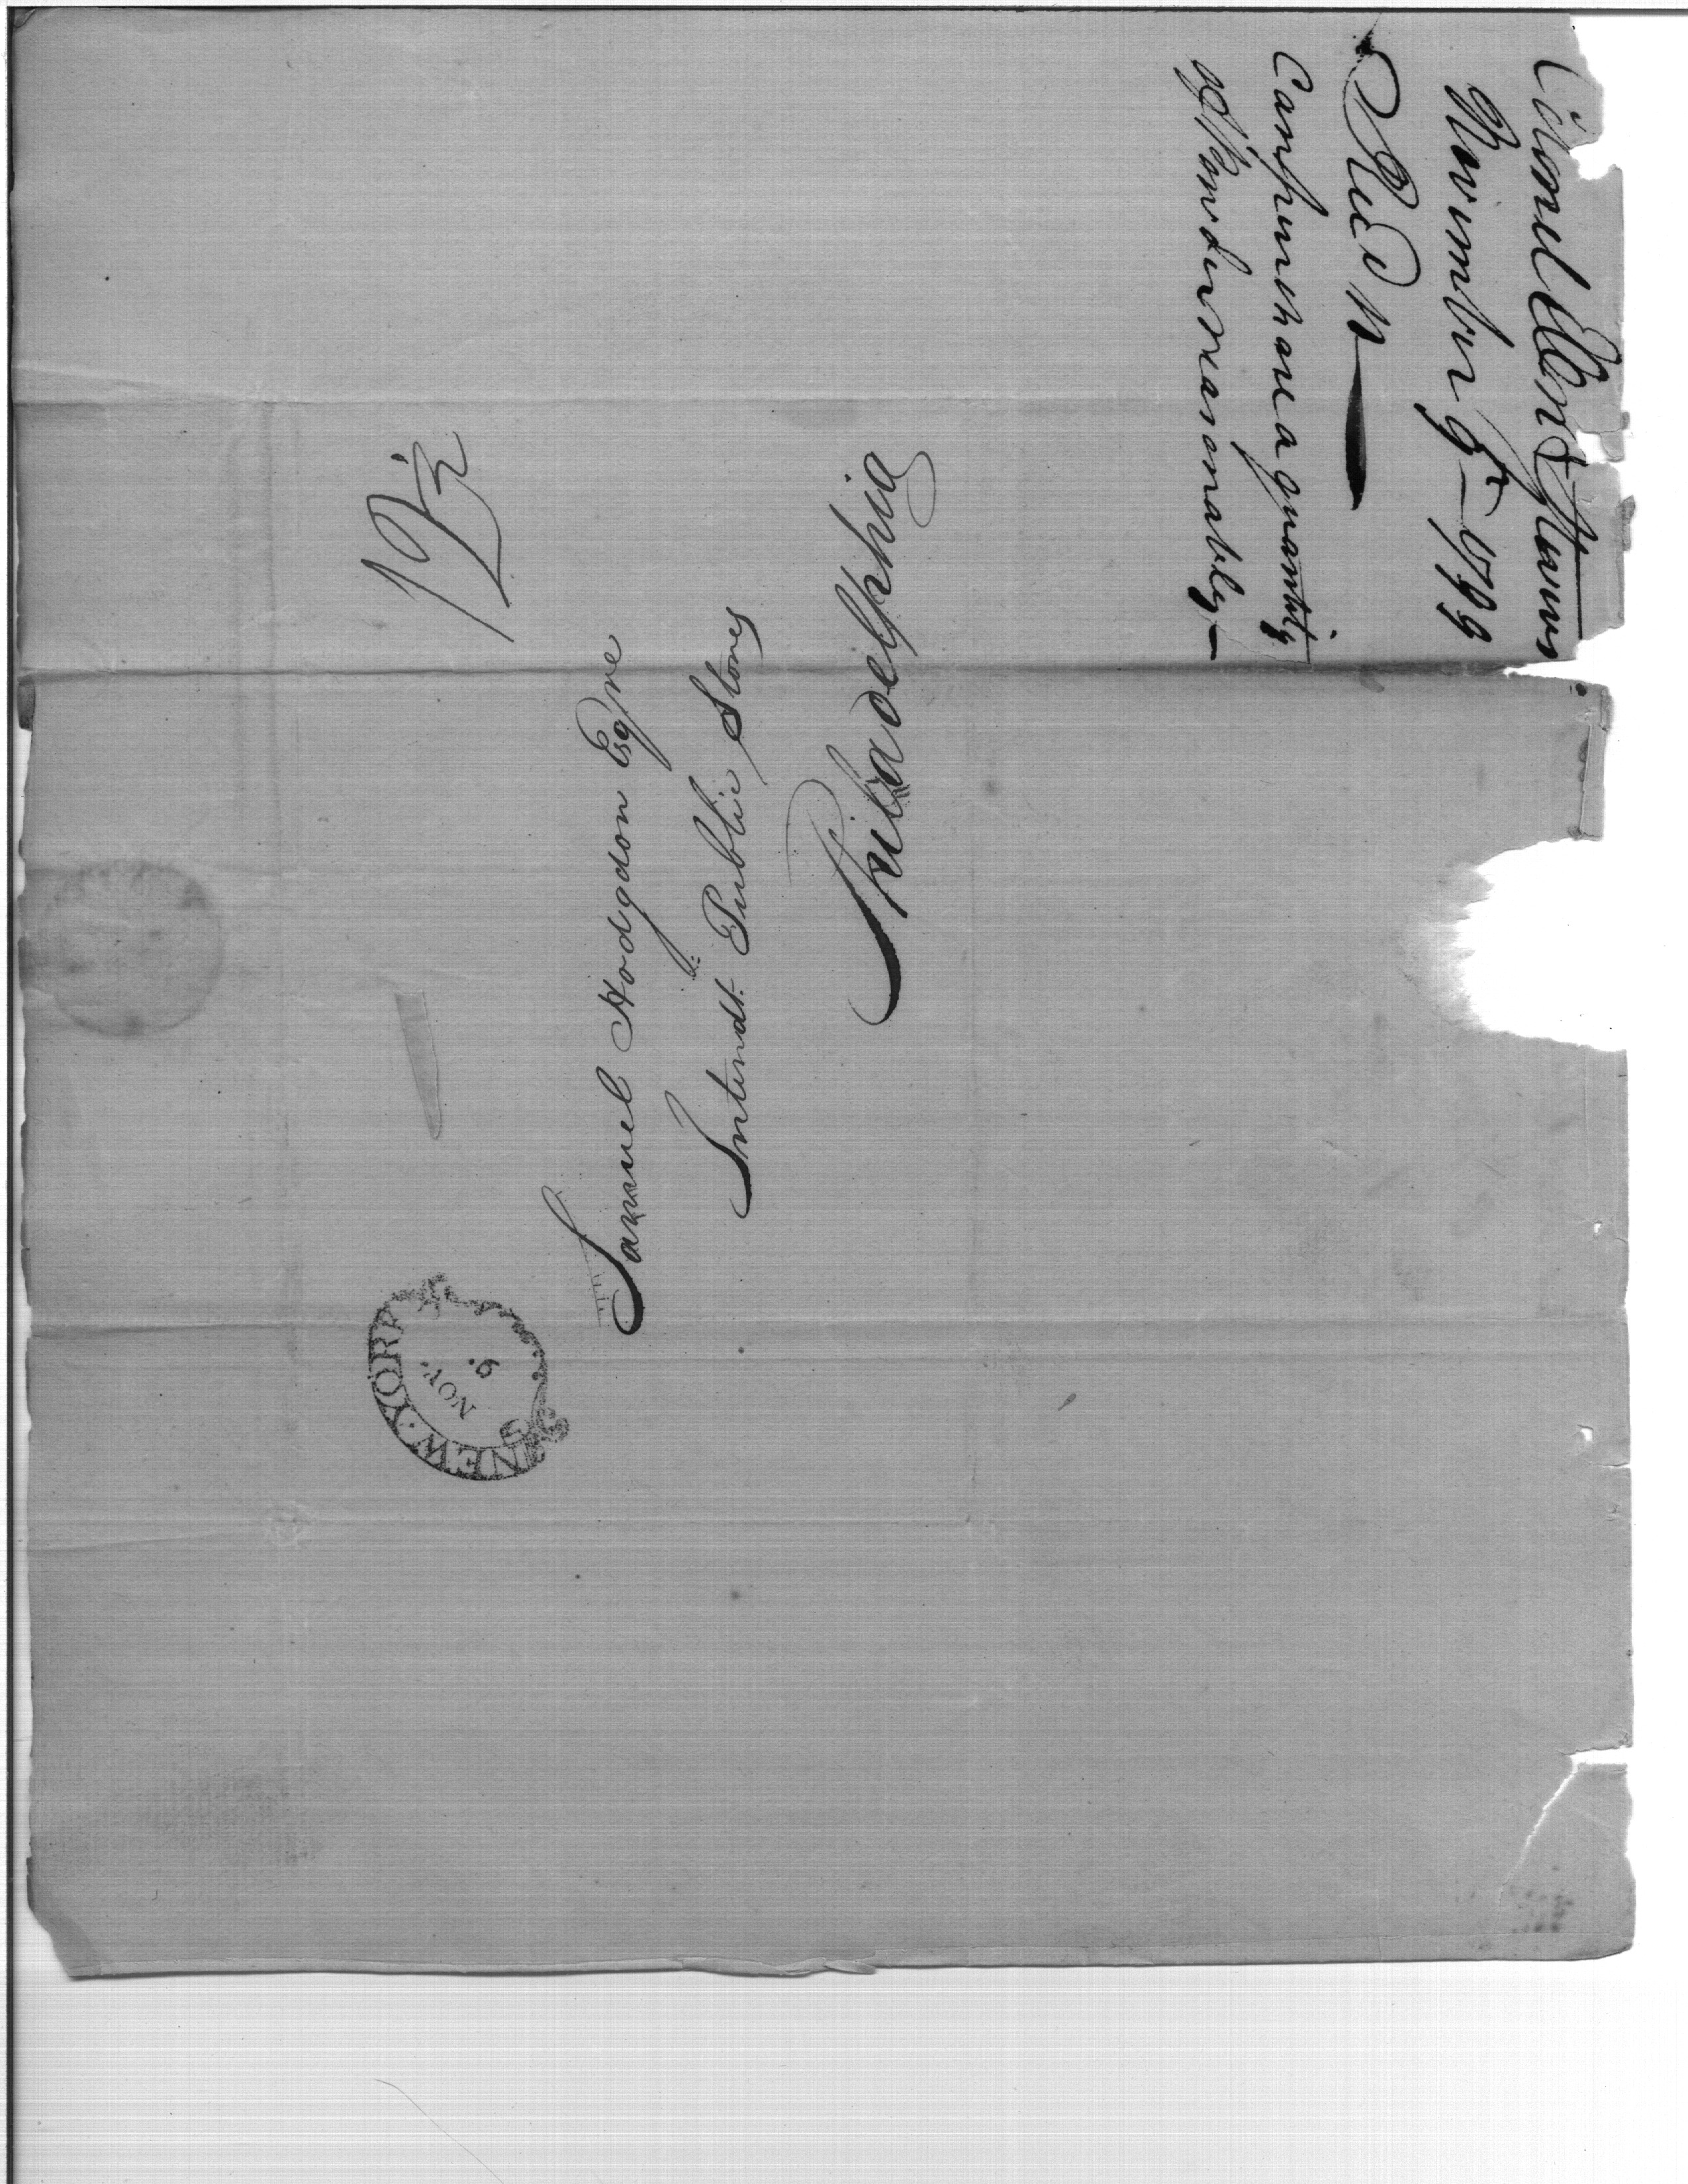 Colonel Eben Stevens
November 5 – 1799
Recd 11
Can purchase a quantity
of Powder reasonably –
12½
Samuel Hodgdon Esqre
Intendt. Public Stores
Philadelphia
NEW YORK
NOV.
6.